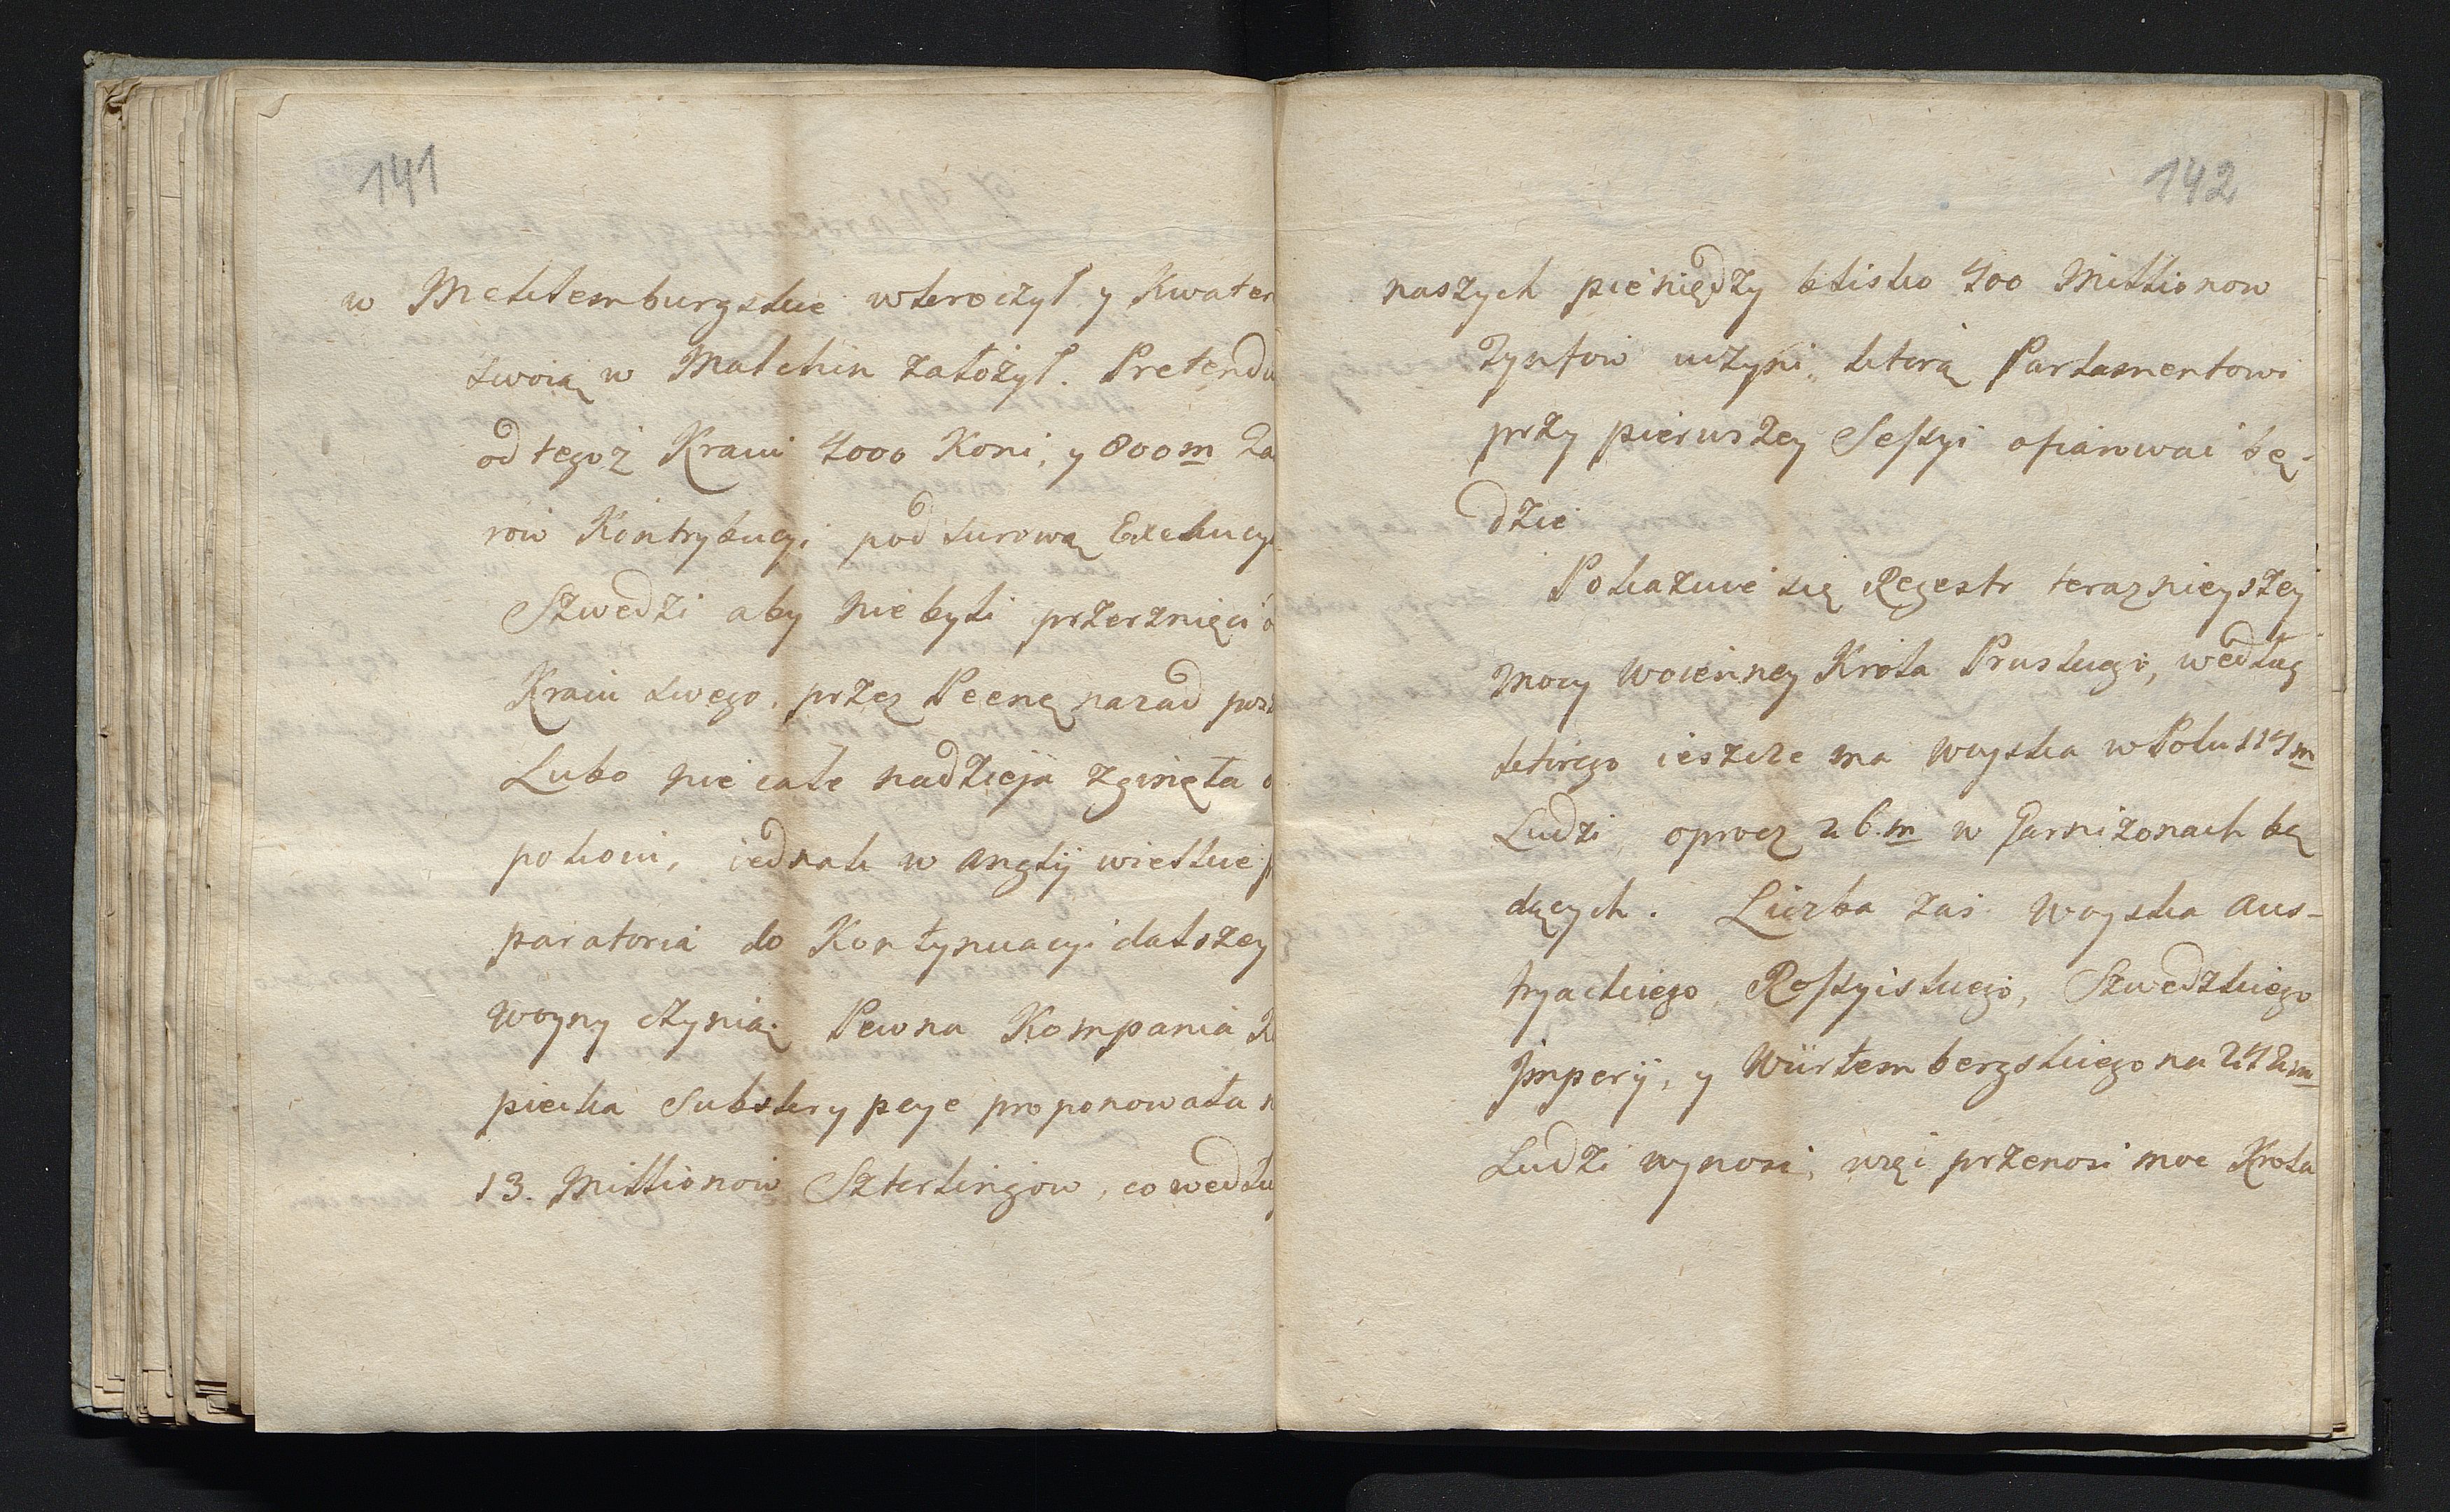 141
w Meklemburgskie wkroczył y Kwater
swoią w Malchin założył. Pretendu
od tegoż Kraiu 4000 Koni, y 800m Ta
row Kontrybucyi pod surową Exekucy
Szwedzi aby nie byli przerznięci o
Kraiu swego, przez Peenę nazad
Lubo nie cale nadzieja zginęła o
pokoiu, iednak w Anglij wielkie p
paratoria do Kontynuacyi dalszey
Woyny czynią. Pewna Kompania K
piecka Subskrypcye proponowała n
13. Millionow Szterlingow, co wedłu
142
naszych pieniędzy blisko 400 Millionow
Tynfow uczyni, ktorą Parlamentowi
przy pierwszey Sessyi ofiarować bę-
dzie
Pokazuie się Regestr teraznieyszey
mocy woienney Krola Pruskiego, według
ktorego ieszcze ma Woyska w Polu 114m
Ludzi, oprocz 26.m w Garnizonach bę
dących. Liczba zaś Woyska Aus-
tryackiego, Rossyiskiego, Szwedzkiego
Jmperij, y Würtembergskiego na 242m
Ludzi wynosi, więc przenosi moc Krola